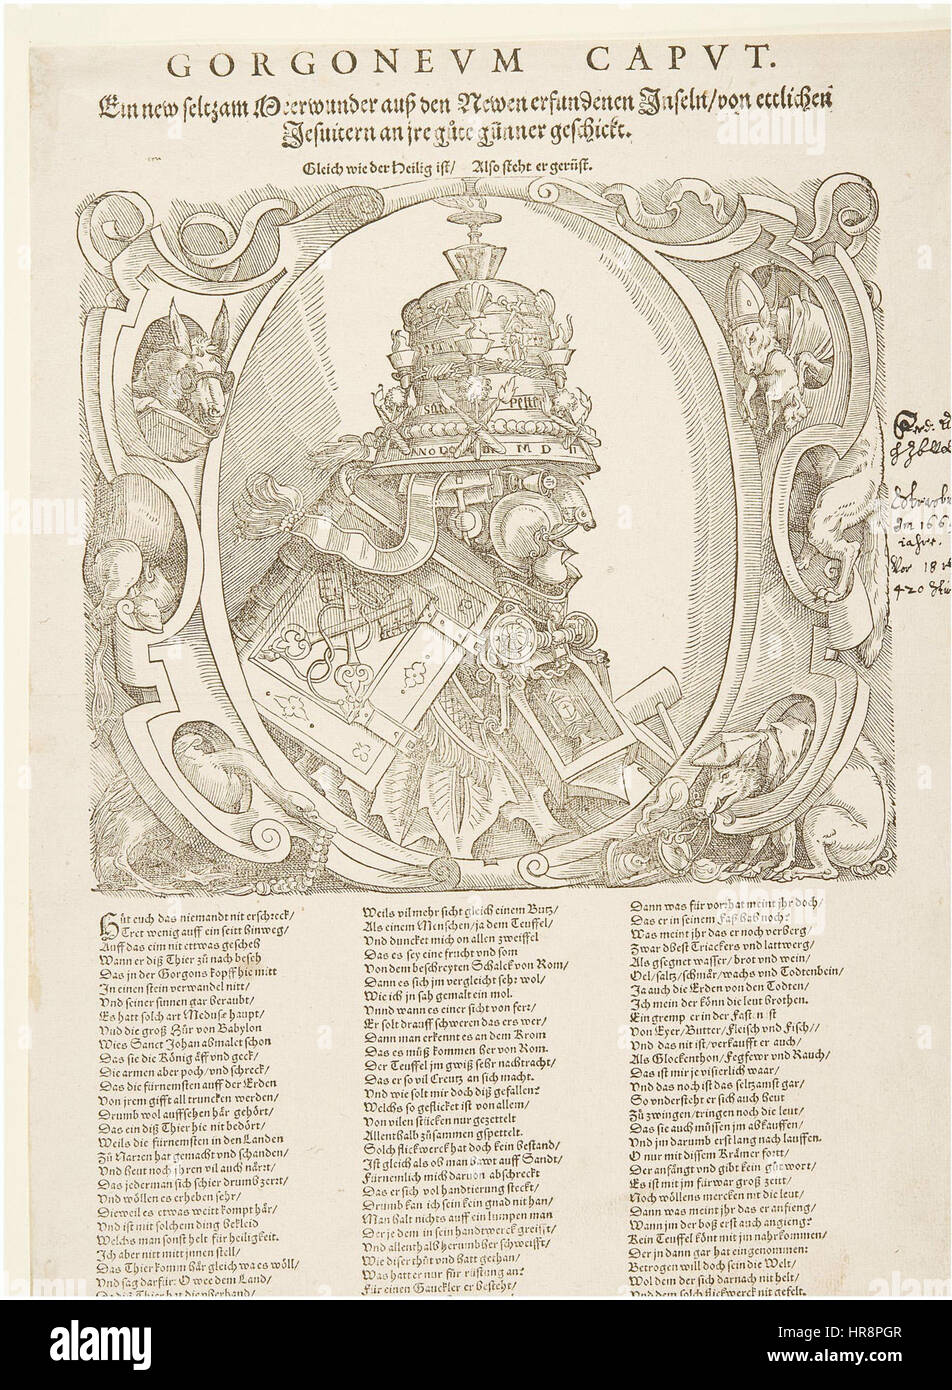 GORGONEVM CAPVT.
Ein new seltzam Meerwunder auß den Newen erfundenen Inseln/von ettlichen
Jesuitern an jre gůte günner geschickt.
Gleich wie der Heilig ist/ Also steht er gerüst.
ANNO DO M D
Hüt euch das niemandt nit erschreck/
Tret wenig auff ein seitt hinweg/
Auff das eim nit ettwas gescheh
Wann er diß Thier zů nach besch
Das jn der Gorgons kopff hie mitt
In einen stein verwandel nitt/
Vnd seiner sinnen gar beraubt/
Es hatt solch art Meduse haupt/
Vnd die groß Hůr von Babylon
Wies Sanct Johan abmalet schon
Das sie die König äff vnd geck/
Die armen aber poch/ vnd schreck/
Das die fürnemsten auff der Erden
Von jrem gifft all truncken werden/
Drumb wol auffsehen här gehört/
Das ein diß Thier hie nit bedört/
Weils die fürnemsten in den Landen
Zů Narzen hat gemacht vnd schanden/
Vnd heut noch jhren vil auch närrt/
Das jederman sich schier drumb zerrt/
Vnd wöllen es erheben sehr/
Dieweil es etwas weitt kompt här/
Vnd ist mit solchem ding bekleid
Welchs man sonst helt für heiligkeit.
Ich aber nitt mitt jnnen stell/
Das Thier komm här gleich wa es wöll/
Vnd sag darfür: O wee dem Land/
Weils vil mehr sicht gleich einem Butz/
Als einem Menschen/ja dem Teuffel/
Vnd duncket mich on allen zweiffel
Das es sey eine frucht vnd som
Von dem beschreyten Schalck von Rom/
Dann es sich jm vergleicht sehr wol/
Wie ich jn sah gemalt ein mol.
Vnnd wann es einer sicht von ferz/
Er solt drauff schweren das ers wer/
Dann man erkennt es an dem Krom
Das es můß kommen her von Rom.
Der Teuffel jm gwiß sehr nachtracht/
Das er so vil Creutz an sich macht.
Vnd wie solt mir doch diß gefallen?
Welchs so geflicket ist von allem/
Von vilen stücken nur gezettelt
Allenthalb zůsammen gspettelt.
Solch flickwerck hat doch kein bestand/
Ist gleich als ob man bawt auff Sandt/
Fürnemlich mich daruon abschreckt
Das er sich vol handtierung steckt/
Drumb kan ich sein kein gnad nit han/
Man halt nichts auff ein lumpen man
Der je dem in sein handtwerck greifft/
Vnd allenthalb herumbher schweifft/
Wie diser thůt vnd hatt gethan/
Was hatt er nur für rüstung an?
Für einen Gauckler er besteht/
Dann was für vorzhat meint jhr doch/
Das er in seinem Faß hab noch?
Was meint jhr das er noch verberg/
Zwar dbest Triackers vnd lattwerg/
Als gsegnet wasser/ brot vnd wein/
Oel/saltz/schmär/wachs vnd Todtenbein/
Ja auch die Erden von den Todten/
Ich mein der könn die leut brothen.
Ein gremp er in der Fasten ist
Von Eyer/Butter/Fleisch vnd Fisch/
Vnd das nit ist/verkaufft er auch/
Als Glockenthon/Fegfewr vnd Rauch/
Das ist mir je visierlich waar/
Vnd das noch ist das seltzamst gar/
So vndersteht er sich auch heut
Zů zwingen/tringen noch die leut/
Das sie auch müssen jm abkauffen/
Vnd jm darumb erst lang nach lauffen.
O nur mit dissem Krämer fortt/
Der anfängt vnd gibt kein gůt wort/
Es ist mit jm fürwar groß zeitt/
Noch wöllens mercken nit die leut/
Dann was meint jhr das er anfieng/
Wann jm der boß erst auch angieng?
Kein Teuffel könt mit jm nahrkommen/
Der jn dann gar hat eingenommen:
Betrogen will doch sein die Welt/
Wol dem der sich darnach nit helt/
Vnd dem solch flickwerck nit gefelt.
alamy
Image ID: HR8PGR
www.alamy.com